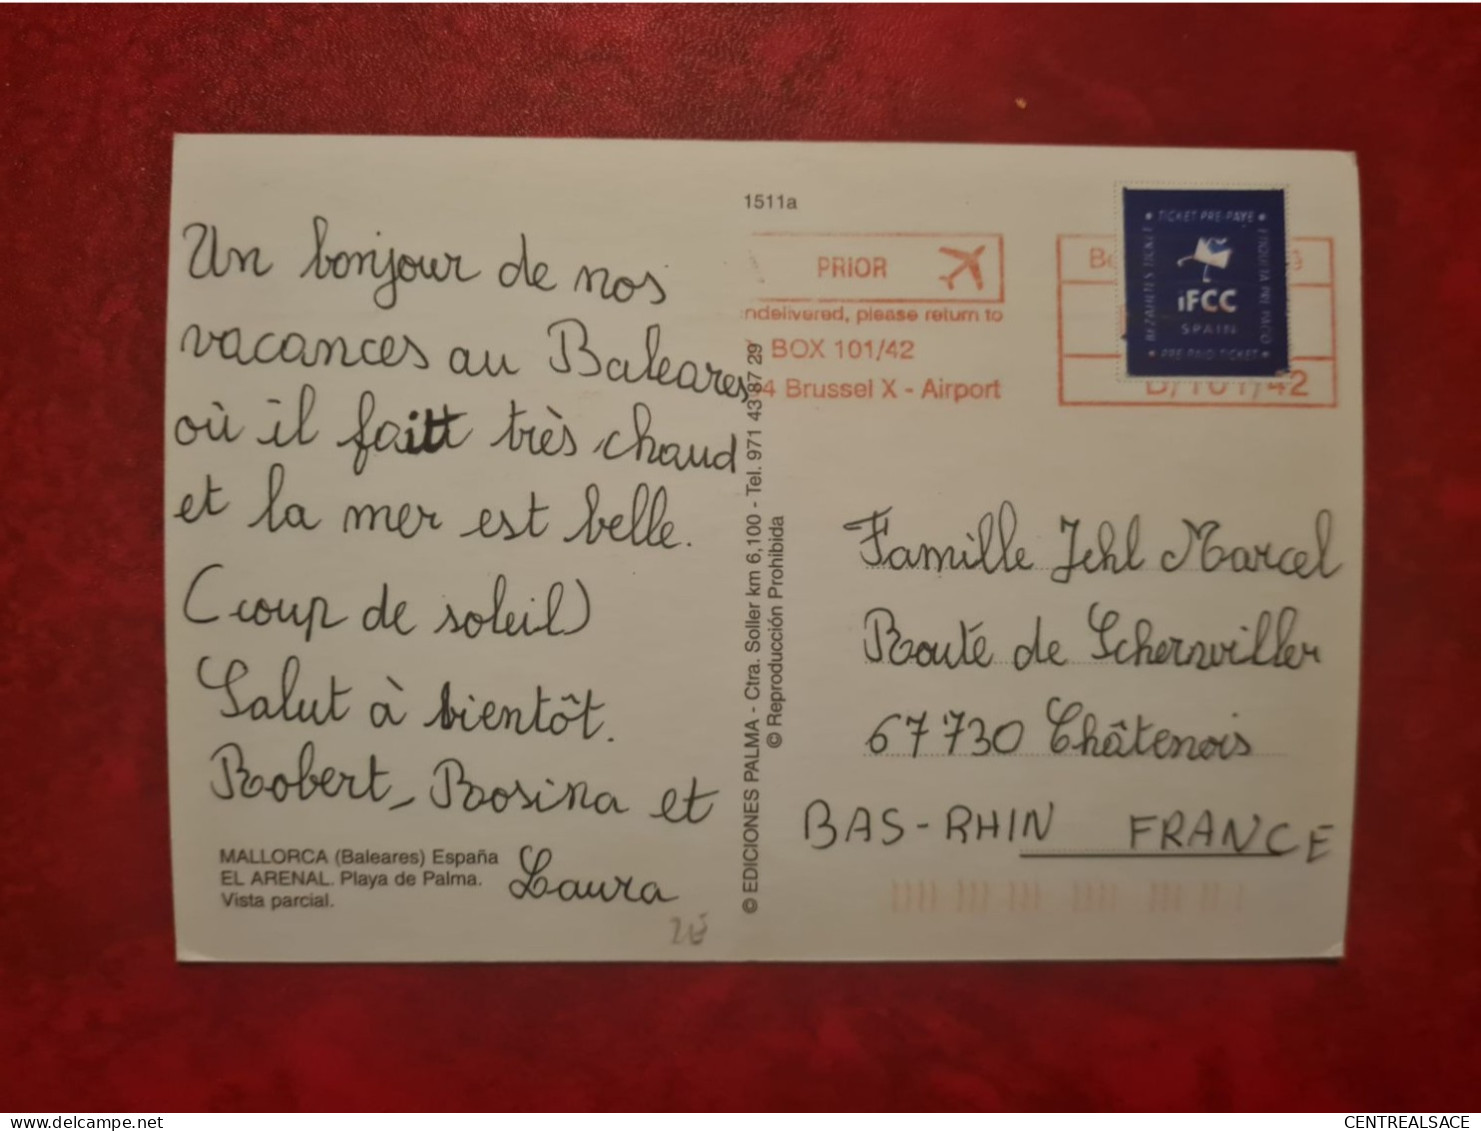 1511a
Un bonjour de nos
vacances au Baleares
où il faitt très chaud
et la mer est belle.
(coup de soleil)
Salut à bientôt.
Robert, Rosina et
Laura
MALLORCA (Baleares) España
EL ARENAL. Playa de Palma.
Vista parcial.
© EDICIONES PALMA - Ctra. Soller km 6,100 - Tel. 971 43 87 29
© Reproducción Prohibida
PRIOR
ndelivered, please return to
BOX 101/42
4 Brussel X - Airport
B/101/42
• TICKET PRE-PAYE •
BEZAHLTES TICKET
ETIQUETA PRE PAGO
iFCC
SPAIN
• PRE-PAID TICKET •
Famille Jehl Marcel
Route de Scherwiller
67730 Châtenois
BAS-RHIN FRANCE
delcampe.net
CENTREALSACE